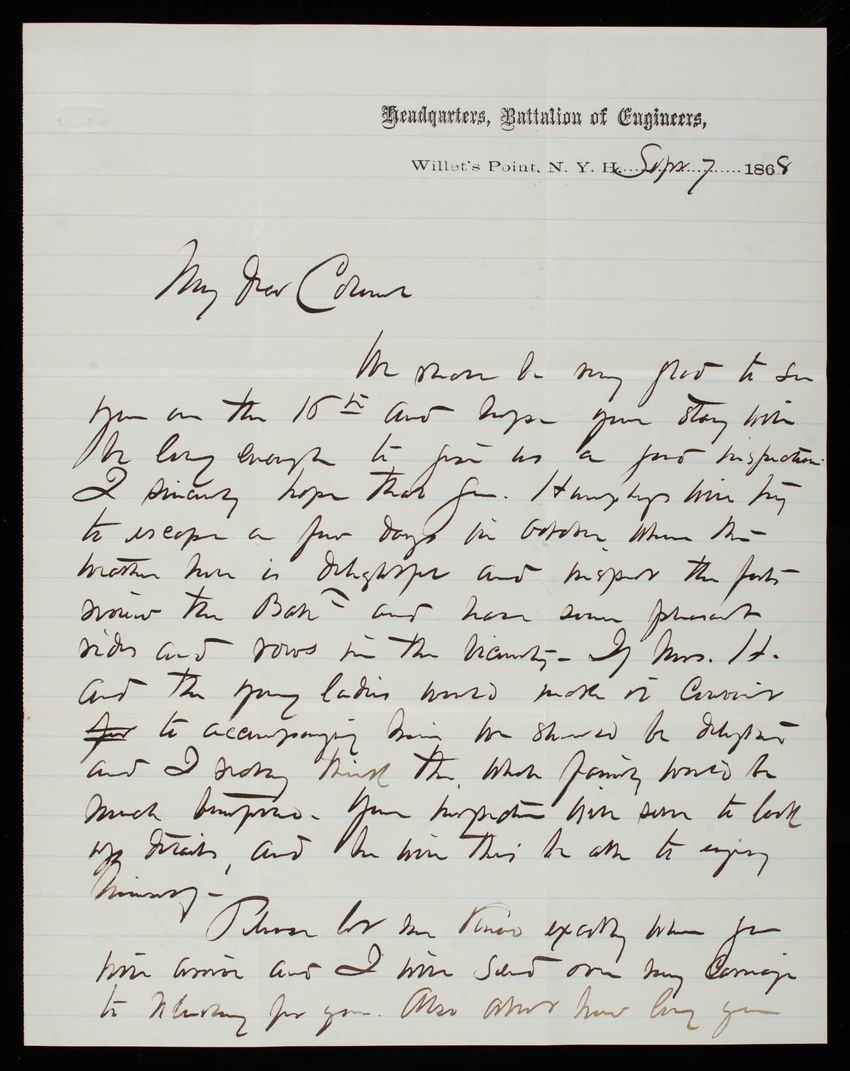 Headqarters, Battalion of Engineers,
Willet's Point, N. Y. H. Sept 7 1868
My dear Colonel
We shall be very glad to see
you on the 15th and hope your stay will
be long enough to give us a good inspection.
I sincerely hope that Gen. Humphreys will try
to escape a few days in October when the
weather here is delightful and inspect the forts
review the Batn and have some pleasant
rides and rows in the vicinity - If Mrs. H.
and the young ladies would make it convenient
for to accompanying him we should be delighted
and I really think the whole family would be
much benefited. Your inspection will serve to look
up details, and he will thus be able to enjoy
himself -
Please let me know exactly when you
will arrive and I will send over my Carriage
to Flushing for you. Also about how long you